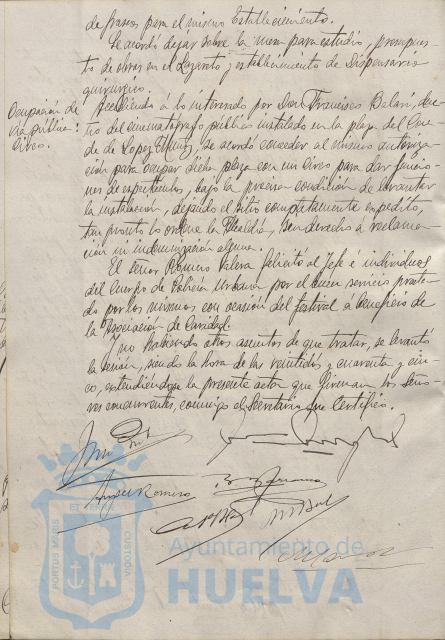 de frascos para el mismo Establecimiento.
Se acordó dejar sobre la mesa para estudio, presupues-
to de obras en el Lazareto y establecimiento de Dispensario
quirúrgico.
Ocupación de
vía pública:
Circo.
Accediendo á lo interesado por Don Francisco Belari, due-
ño del cinematógrafo público instalado en la plaza del Con-
de de López Muñoz, se acordó conceder al mismo autoriza-
ción para ocupar dicha plaza con un Circo para dar funcio-
nes de espectáculos, bajo la precisa condición de levantar
la instalación, dejando el sitio completamente expedito,
tan pronto lo ordene la Alcaldía, sin derecho á reclama-
ción ni indemnización alguna.
El Señor Romero Valera felicitó al Jefe é individuos
del Cuerpo de Policía Urbana por el buen servicio presta-
do por los mismos con ocasión del festival á beneficio de
la Asociación de Caridad.
Y no habiendo otros asuntos de que tratar, se levantó
la sesión, siendo la hora de las veintidós y cuarenta y cin-
co, extendiéndose la presente acta que firman los Seño-
res concurrentes, conmigo el Secretario que Certifico.
Angel Romero
PORTUS MARIS ET TERRE CUSTODIA
Ayuntamiento de
HUELVA